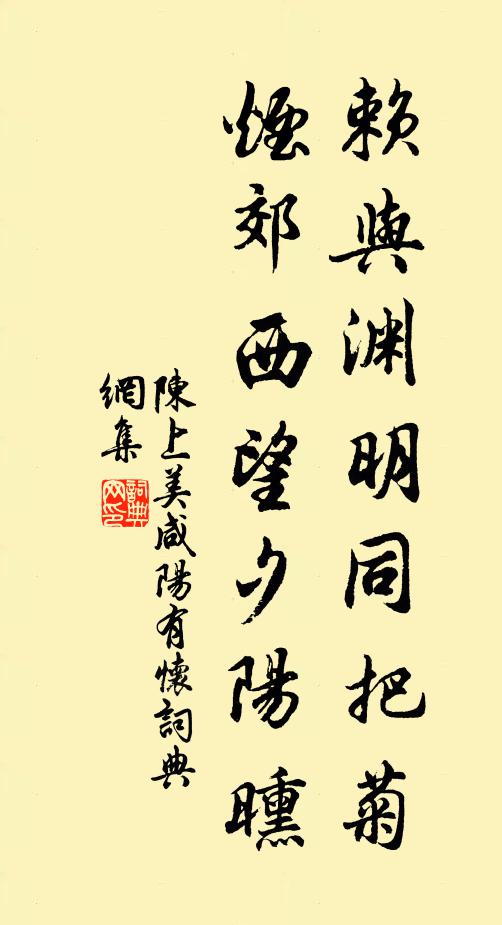 賴與渊明同把菊
煙郊西望夕陽曛
陳上美咸陽有懷詞典
網集
詞典
网印